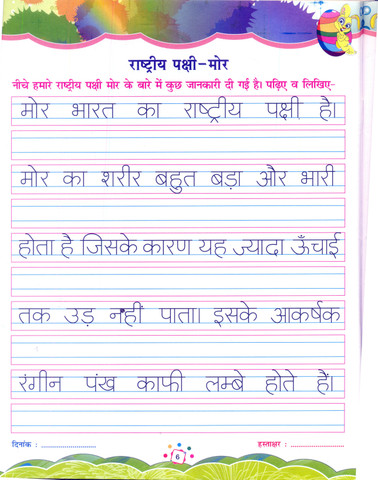 राष्ट्रीय पक्षी-मोर
नीचे हमारे राष्ट्रीय पक्षी मोर के बारे में कुछ जानकारी दी गई है। पढ़िए व लिखिए-
मोर भारत का राष्ट्रीय पक्षी है।
मोर का शरीर बहुत बड़ा और भारी
होता है जिसके कारण यह ज्यादा ऊँचाई
तक उड़ नहीं पाता। इसके आकर्षक
रंगीन पंख काफी लम्बे होते हैं।
दिनांक : ........................ हस्ताक्षर : ........................
6